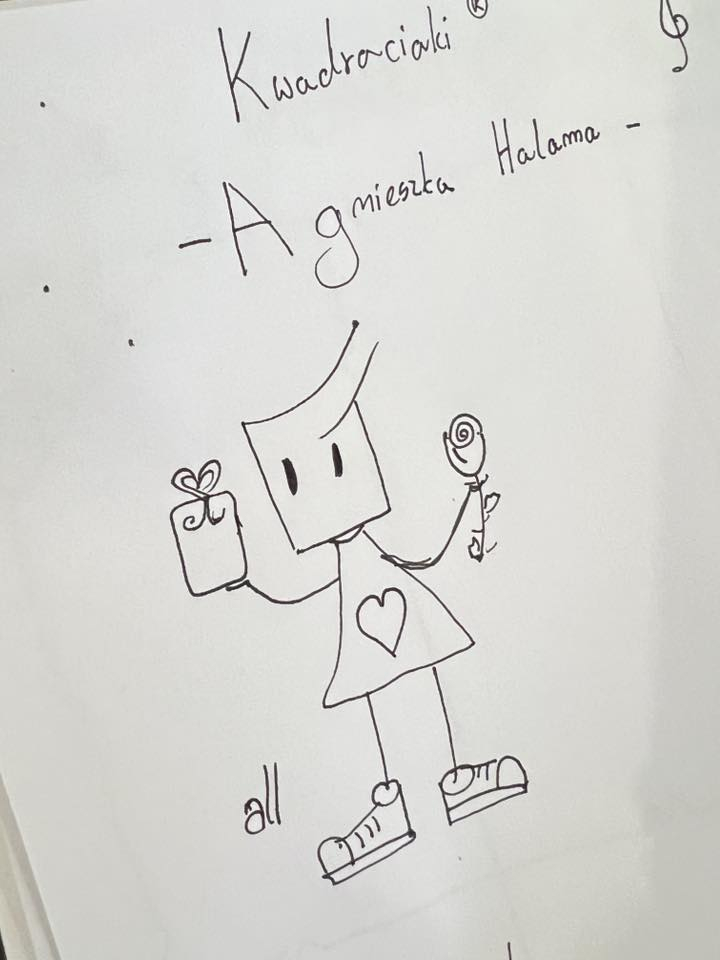 Kwadraciaki ®
- Agnieszka Halama -
all